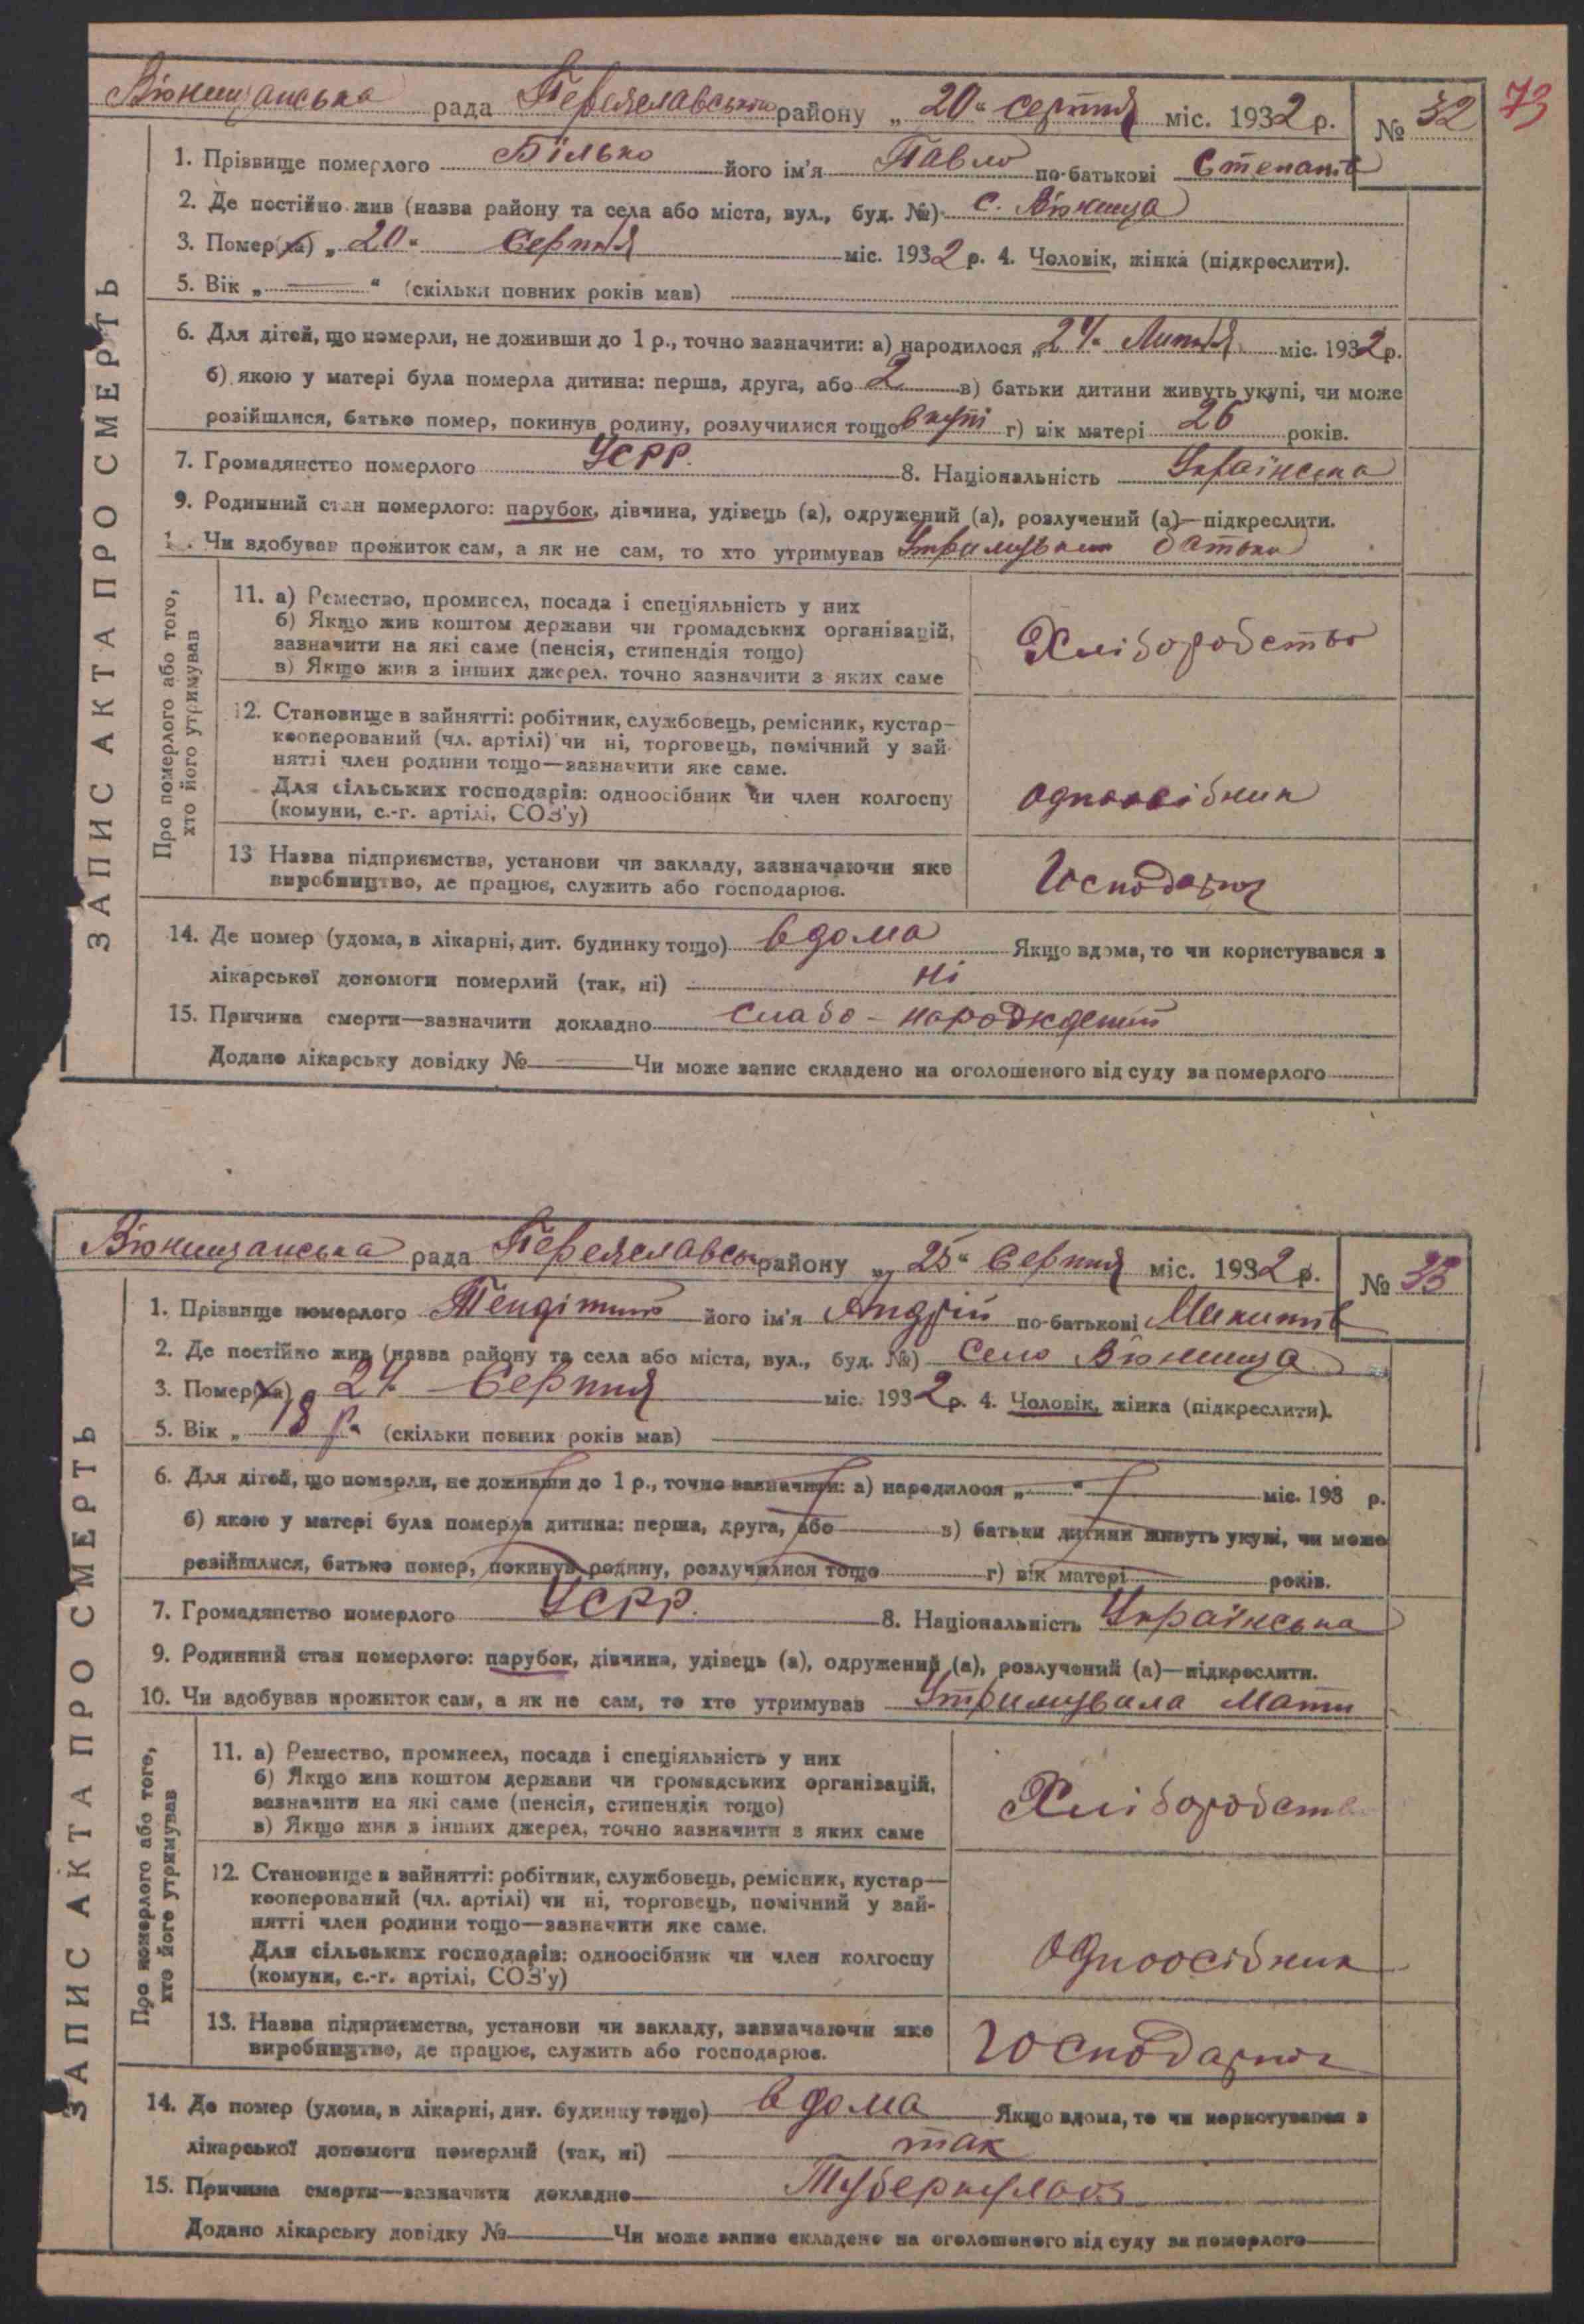 73
Вюнищанська рада Переяславськ району „20“ серпня міс. 1932 р. № 32
ЗАПИС АКТА ПРО СМЕРТЬ
1. Прізвище померлого Білько його ім'я Павло по-батькові Степанів
2. Де постійно жив (назва району та села або міста, вул., буд. №) с. Вюнища
3. Помер(ла) „20“ Серпня міс. 1932 р. 4. Чоловік, жінка (підкреслити).
5. Вік „—“ (скільки повних років мав)
6. Для дітей, що померли, не доживши до 1 р., точно зазначити: а) народилося „24“ Липня міс. 1932 р.
б) якою у матері була померла дитина: перша, друга, або 2 в) батьки дитини живуть укупі, чи може
розійшлися, батько помер, покинув родину, розлучилися тощо вкупі г) вік матері 26 років.
7. Громадянство померлого УСРР. 8. Національність Українська
9. Родинний стан померлого: парубок, дівчина, удівець (а), одружений (а), розлучений (а)—підкреслити.
1 . Чи здобував прожиток сам, а як не сам, то хто утримував батьки
Про померлого або того,
хто його утримував
11. а) Ремество, промисел, посада і спеціяльність у них
б) Якщо жив коштом держави чи громадських організацій,
зазначити на які саме (пенсія, стипендія тощо)
в) Якщо жив з інших джерел. точно зазначити з яких саме
Хліборобство
12. Становище в зайнятті: робітник, службовець, ремісник, кустар—
кооперований (чл. артілі) чи ні, торговець, помічний у зай-
нятті член родини тощо—зазначити яке саме.
Для сільських господарів: одноосібник чи член колгоспу
(комуни, с.-г. артілі, СОЗ'у)
одноосібник
13 Назва підприємства, установи чи закладу, зазначаючи яке
виробництво, де працює, служить або господарює.
Господарює
14. Де помер (удома, в лікарні, дит. будинку тощо) вдома Якщо вдома, то чи користувався з
лікарської допомоги померлий (так, ні) ні
15. Причина смерти—зазначити докладно слабо-народжений
Додано лікарську довідку № — Чи може запис складено на оголошеного від суду за померлого
Вюнищанська рада Переяславськ району „25“ Серпня міс. 1932 р. № 33
ЗАПИС АКТА ПРО СМЕРТЬ
1. Прізвище померлого його ім'я Андрій по-батькові Микитів
2. Де постійно жив (назва району та села або міста, вул., буд. №) Село Вюнища
3. Помер(ла) „24“ Серпня міс. 1932 р. 4. Чоловік, жінка (підкреслити).
5. Вік „18 р.“ (скільки повних років мав)
6. Для дітей, що померли, не доживши до 1 р., точно зазначити: а) народилося „—“ міс. 193 р.
б) якою у матері була померла дитина: перша, друга, або в) батьки дитини живуть укупі, чи може
розійшлися, батько помер, покинув родину, розлучилися тощо г) вік матері років.
7. Громадянство померлого УСРР. 8. Національність Українська
9. Родинний стан померлого: парубок, дівчина, удівець (а), одружений (а), розлучений (а)—підкреслити.
10. Чи здобував прожиток сам, а як не сам, то хто утримував Утримувала Мати
Про померлого або того,
хто його утримував
11. а) Ремество, промисел, посада і спеціяльність у них
б) Якщо жив коштом держави чи громадських організацій,
зазначити на які саме (пенсія, стипендія тощо)
в) Якщо жив з інших джерел, точно зазначити з яких саме
Хліборобство
12. Становище в зайнятті: робітник, службовець, ремісник, кустар—
кооперований (чл. артілі) чи ні, торговець, помічний у зай-
нятті член родини тощо—зазначити яке саме.
Для сільських господарів: одноосібник чи член колгоспу
(комуни, с.-г. артілі, СОЗ'у)
одноосібник
13. Назва підприємства, установи чи закладу, зазначаючи яке
виробництво, де працює, служить або господарює.
Господарює
14. Де помер (удома, в лікарні, дит. будинку тощо) вдома Якщо вдома, то чи користувався з
лікарської допомоги померлий (так, ні) так
15. Причина смерти—зазначити докладно Туберкульоз
Додано лікарську довідку № — Чи може запис складено на оголошеного від суду за померлого